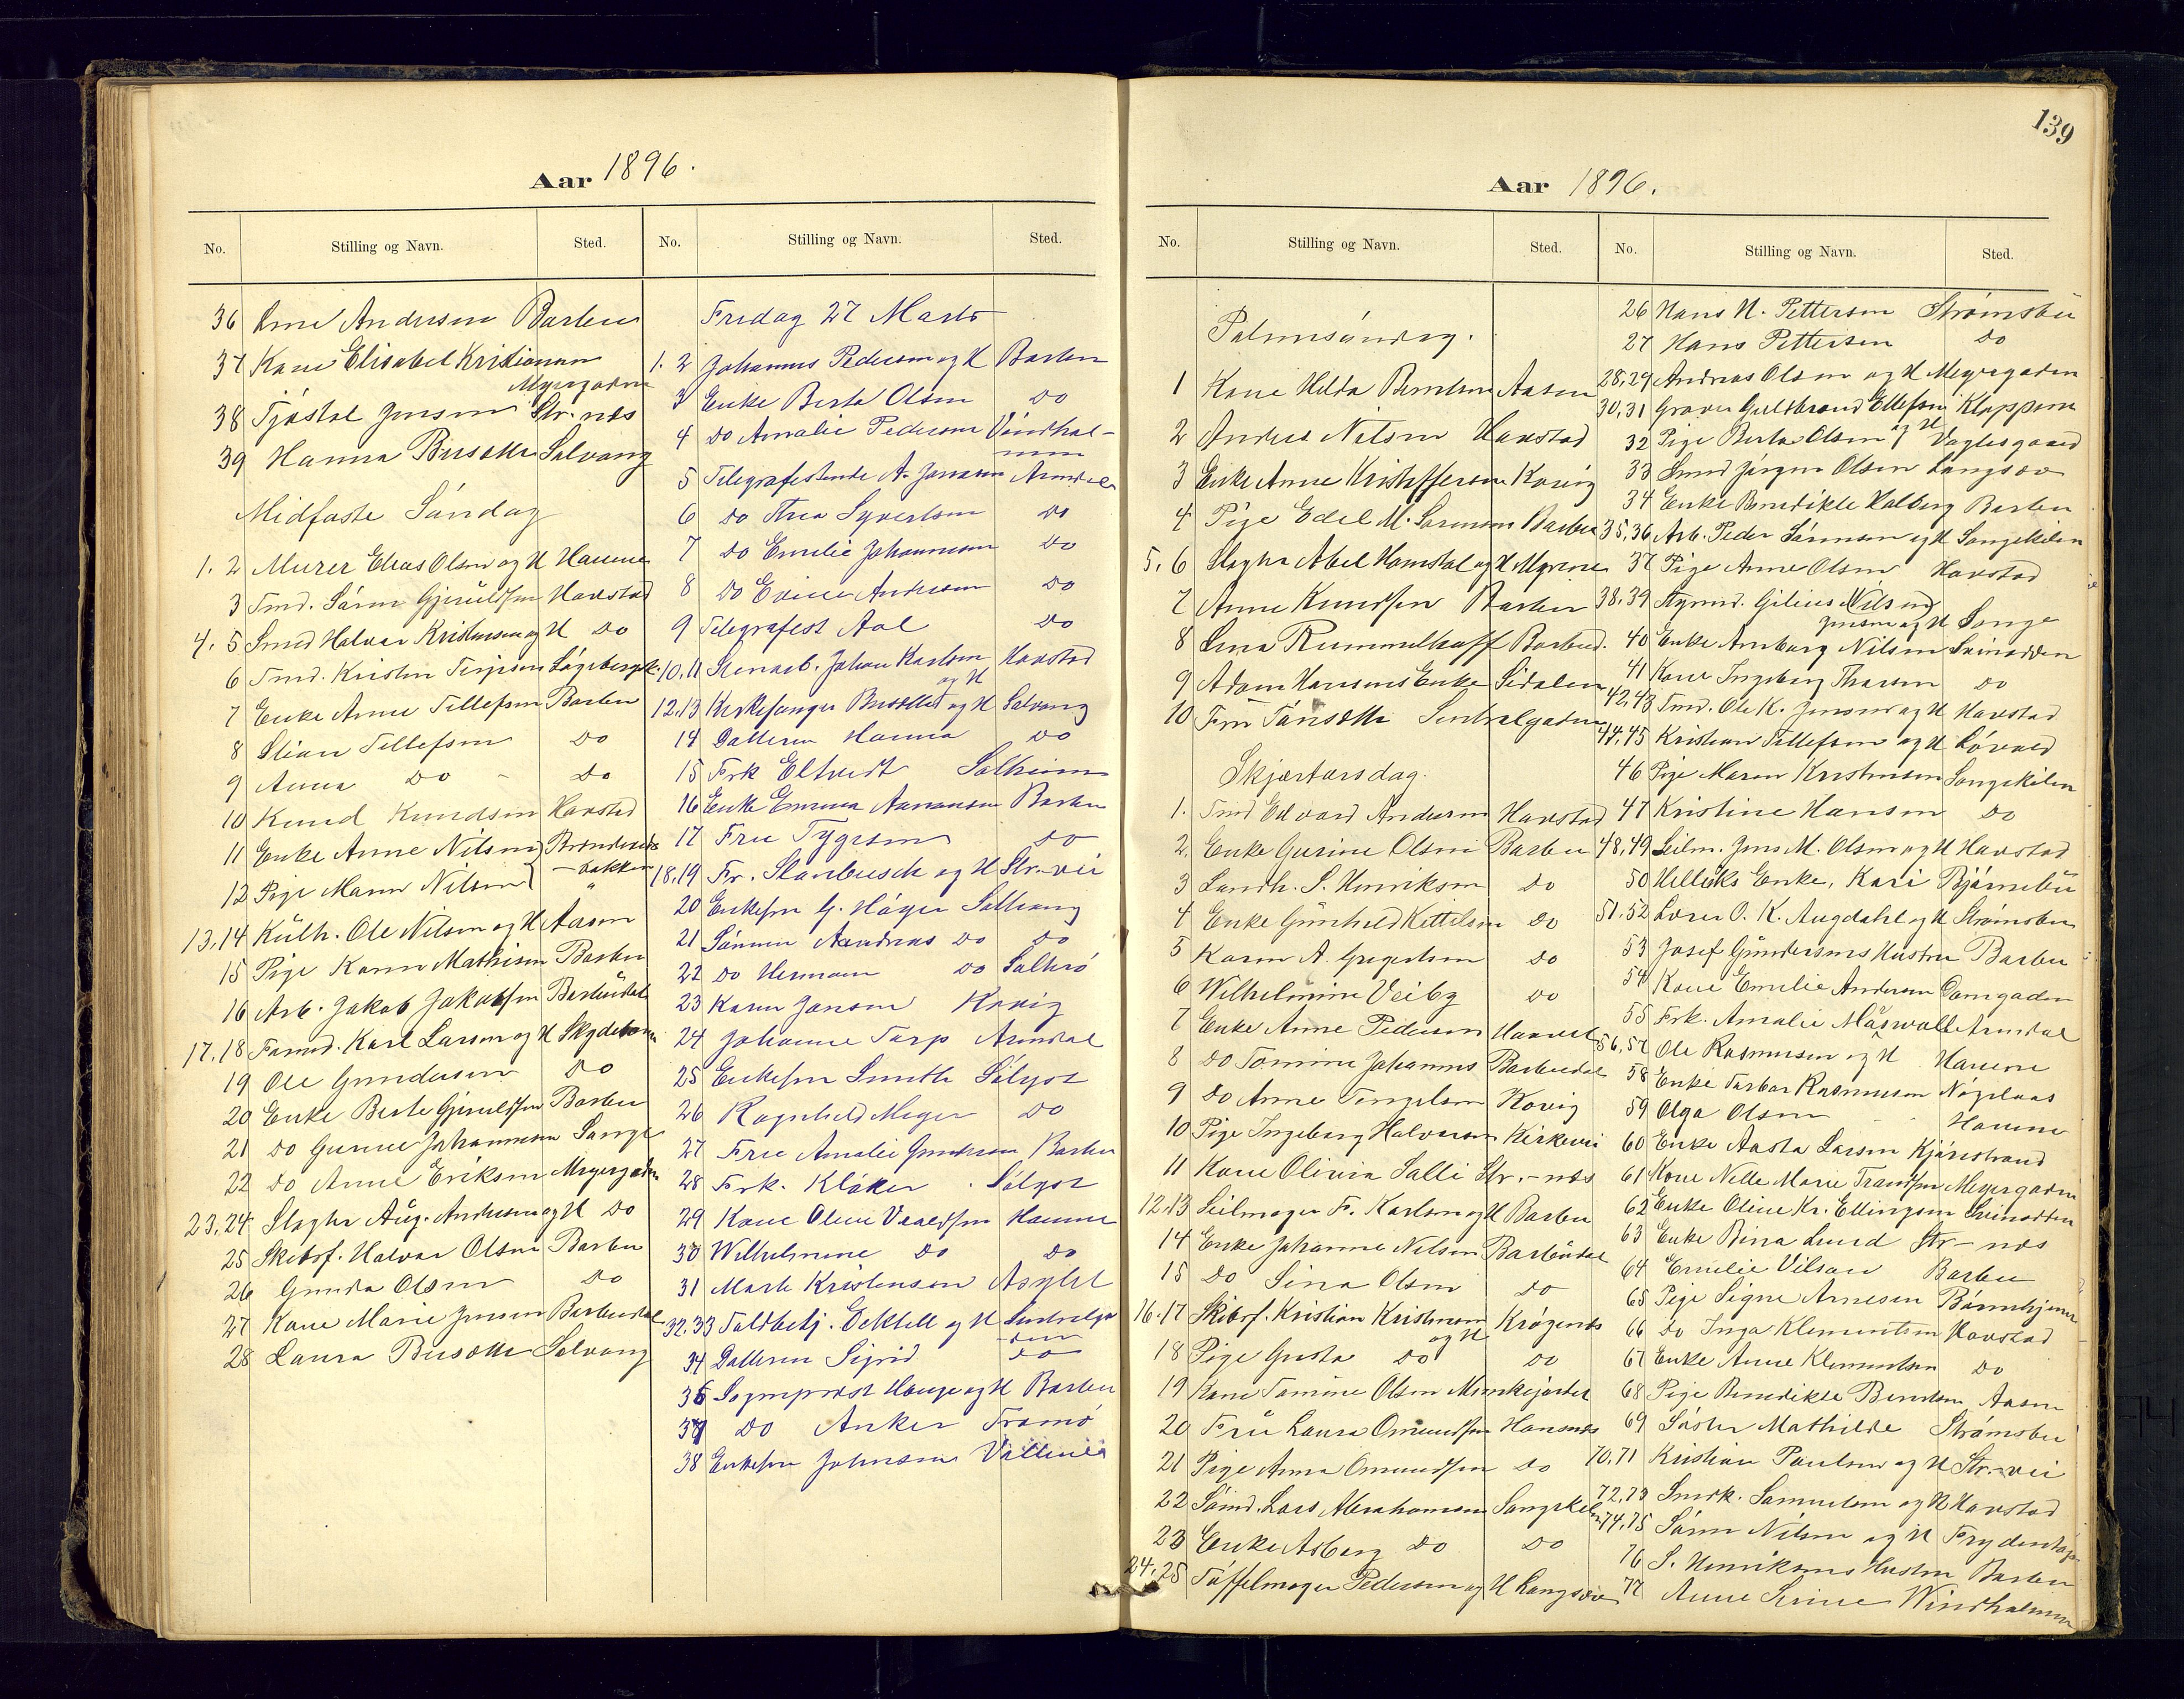 139
Aar 1896.
No. Stilling og Navn. Sted. No. Stilling og Navn. Sted.
36 Andersen Barbu
37 Kone Elisabet Kristiansen
Myrgaden
38 Tjøstol Jensen Str.næs
39 Hanna Busøtter Solvang
Midfaste Søndag
1. 2 Murer Elias Olsen og H Havene
3 Tmd. Søren Gjeruldsen Havstad
4. 5 Smed Halvor Kristensen og H Do
6 Tmd. Kristen Terjesen
7 Enke Anne Tellefsen Barbu
8 Stian Tellefsen Do
9 Anna Do Do
10 Knud Knudsen Havstad
11 Enke Anne Nilsen
bakken
12 Pige Maren Nilsen "
13,14 Kulh. Ole Nilsen og H Aasen
15 Pige Karen Mathisen Barbu
16 Arb. Jakob Jakobsen Barbudal
17,18 Karl Larsen og H Skydebanen
19 Ole Gundersen Do
20 Enke Berte Gjeruldsen Barbu
21 Do Gunne Johannesen Songe
22 Do Anne Eriksen Myrgaden
23,24 Slagter Aug. Andersen og H Do
25 Skibsf. Halvor Olsen Barbu
26 Gunda Olsen Do
27 Kone Marie Jensen Barbudal
28 Laura Busøtter Solvang
Fredag 27 Marts
1. 2 Johannes Pedersen og H Barbu
3 Enke Berta Olsen Do
4 Do Amalie Pedersen Vindhol-
men
5 A. Jonassen Arendal
6 Do Thea Syvertsen Do
7 Do Emilie Johannesen Do
8 Do Andersen Do
9 Telegrafist Aal Do
10,11 Stenarb. Johan Karlsen Havstad
og H
12,13 Kirkesanger Busøtter og H Solvang
14 Datteren Hanna Do
15 Frk Eltvedt Solheim
16 Enke Emma Aanonsen Barbu
17 Fru Tygesen Do
18,19 Fr. og H Str.vei
20 Enkefru G. Høyer Solvang
21 Sønnen Andreas Do Do
22 Do Herman Do
23 Karen Jensen Kovig
24 Johanne Torp Arendal
25 Enkefru Smith Sølyst
26 Ragnhild Meyer Do
27 Fru Amalie Gundersen Barbu
28 Frk. Kløcker Sølyst
29 Kone Oline Havene
30 Wilhelmine Do Do
31 Marte Kristensen Asylet
32,33 Toldbetj. og H
den
34 Datteren Sigrid Do
35 Sogneprest Hauge og H Barbu
37 Do Anker Tromø
38 Enkefru Johnsen
Aar 1896.
No. Stilling og Navn. Sted. No. Stilling og Navn. Sted.
Palmesøndag.
1 Kone Hilda Berntsen Aasen
2 Anders Nilsen Havstad
3 Enke Anne Kristoffersen Kovig
4 Pige Edel M. Sørensen Barbu
5,6 Slagter Abel Homdal og H Myrene
7 Anne Knudsen Barbu
8 Lina Rummelhoff Barbu
9 Adam Hansens Enke Sidalen
10 Sentralgaden
Skjærtorsdag.
1. Tmd Edvard Andersen Havstad
2. Enke Gurine Olsen Barbu
3 Landh. S. Henriksen Do
4 Enke Gunhild Kittelsen Do
5 Karen A. Gregertsen Do
6 Wilhelmine Veiby Do
7 Enke Anne Pedersen
8 Do Tomine Johannes Barbudal
9 Do Anne Tengelsen Kovig
10 Pige Ingeborg Halvorsen Kirkevei
11 Kone Olivia Salli Str.-næs
12,13 Seilmager F. Karlsen og H Barbu
14 Enke Johanne Nilsen Barbudal
15 Do Sina Olsen Do
16,17 Skibsf. Kristian Kristensen Krøgenes
og H
18 Pige Gusta Do Do
19 Kone Tomine Olsen Munkejordet
20 Fru Laura Omundsen
21 Pige Anna Omundsen Do
22 Sømd. Lars Abrahamsen Songekilen
23 Enke Asberg Do Do
24,25 Tøffelmager Pedersen og H Langsæe
26 Hans N. Pettersen Strømsbu
27 Hans Pettersen Do
28,29 Andreas Olsen og H Myrgaden
30,31 Graver Gulbrand Ellefsen Kloppene
og H
32 Pige Berta Olsen Voglesgaard
33 Smed Jørgen Olsen Langsæe
34 Enke Benedikte Halberg Barbu
35,36 Arb. Peder Sørensen og H Songekilen
37 Pige Anne Olsen Havstad
38,39 Nilsen
Jensen og H Songe
40 Enke Amborg Nilsen Svinodden
41 Kone Ingeborg Thorsen Do
42,43 Tmd. Ole K. Jensen og H Havstad
44,45 Kristian Tellefsen og H
46 Pige Maren Kristensen Songekilen
47 Kristine Hansen Do
48,49 Seilm. Jens M. Olsen og H Havstad
50 Enke, Kari Bjørnebu
51,52 Lærer O. K. Augdahl og H Strømsbu
53 Josef Gundersens Hustru Barbu
54 Kone Emilie Andersen
55 Frk. Amalie Arendal
56,57 Ole Rasmusen og H Havene
58 Enke Torbor Rasmusen
59 Olga Olsen Havene
60 Enke Aasta Larsen
61 Kone Nelle Marie Myrgaden
62 Enke Oline Kr. Ellingsen Svinodden
63 Enke Bina Lund Str-næs
64 Emilie Barbu
65 Pige Signe Arnesen Børnehjemmet
66 Do Inga Klementsen Havstad
67 Enke Anne Klementsen Do
68 Pige Benedikte Berntsen Aasen
69 Søster Mathilde Strømsbu
70,71 Kristian Paulsen og H Str.-vei
72,73 Snedk. Samuelsen og H Havstad
74,75 Søren Nilsen og H
76 S. Henriksens Hustru Barbu
77 Anne Serine Windholmen